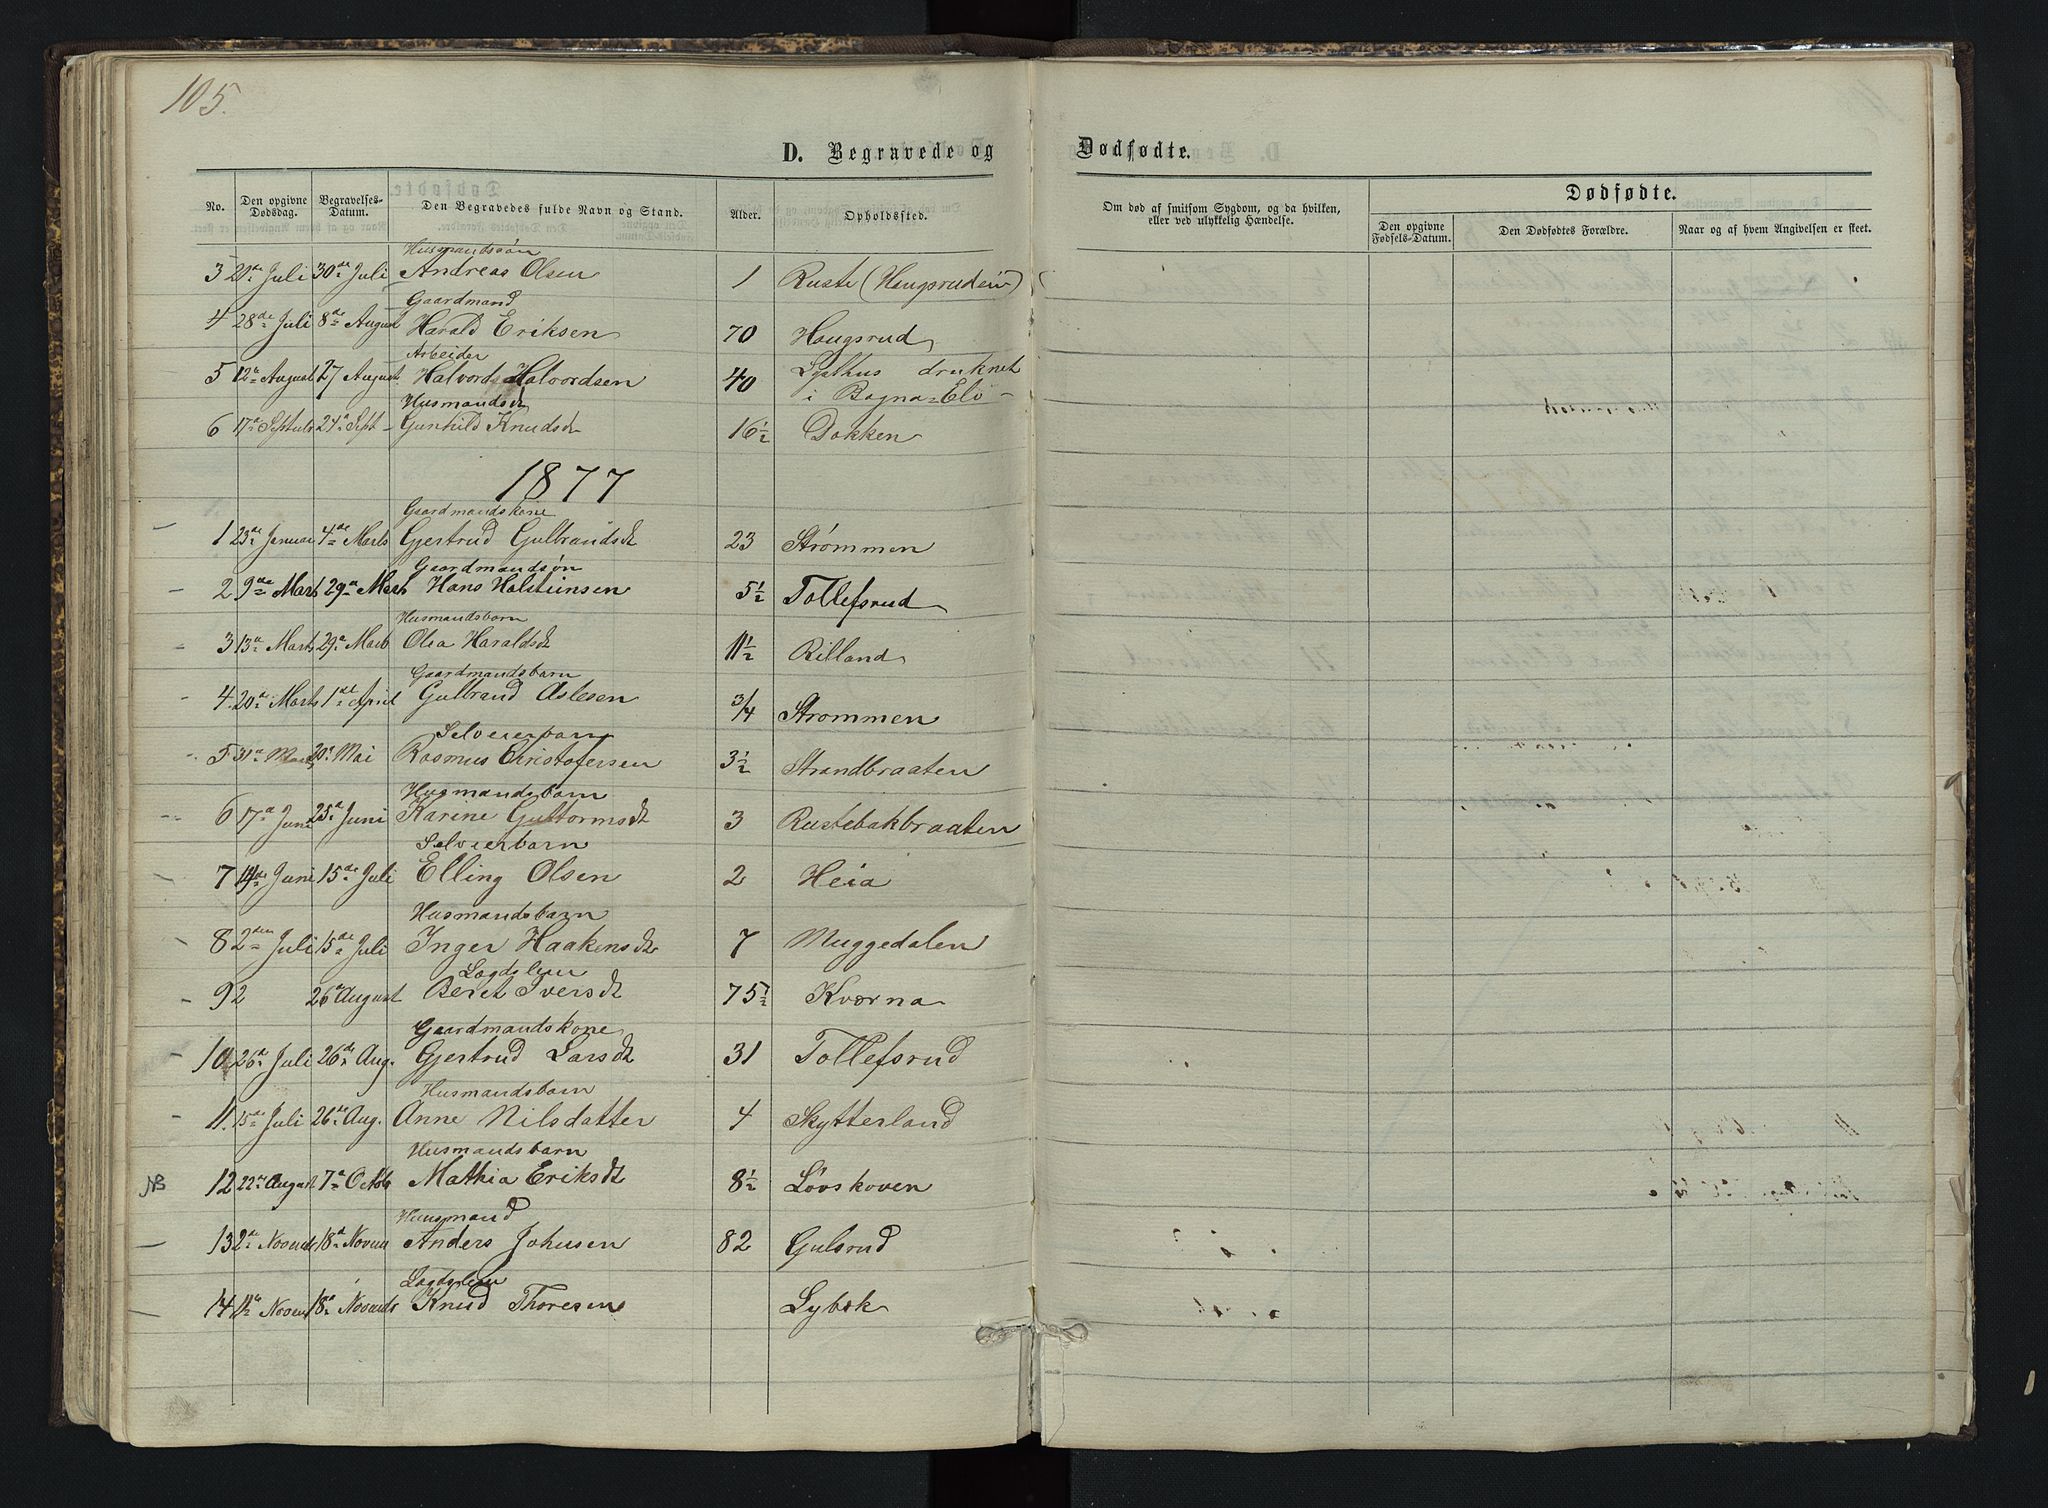 105.
D. Begravede og Dødfødte.
No. Den opgivne Dødsdag. Begravelses-Datum. Den Begravedes fulde Navn og Stand. Alder. Opholdssted. Om død af smitsom Sygdom, og da hvilken, eller ved ulykkelig Hændelse. Dødfødte.
Den opgivne Fødsels-Datum. Den Dødfødtes Forældre. Naar og af hvem Angivelsen er skeet.
Husmandssøn
3 Juli 30de Juli Andreas Olsen 1 Ruste (Haugsrudein)
Gaardmand
4 28de Juli 8de August Harald Eriksen 70 Haugsrud
Arbeider
5 12te August 27 August Halvord Halvordsen 40 druknet
i Bagna-Elv
Husmandsdt
6 17de Septbr 24de Sept Gunhild Knudsdt 16½ Dokken
1877
Gaardmandskone
1 23de Januar 4de Marts Gjertrud Gulbrandsdt 23 Strømmen
Gaardmandsøn
2 9de Marts 29de Marts Hans Holsteinsen 5½ Tollefsrud
Husmandsbarn
3 13de Marts 29de Marts Olea Haraldsdt 11½ Rilland
Gaardmandsbarn
4. 20de Marts 1ste April Gulbrand Aslesen ¾ Strømmen
Selveierbarn
5 31te Mai Rasmus Christofersen 3½ Strandbraaten
Husmandsbarn
6 17de Juni 25de Juni Karine Guttormsdt 3 Rustebakbraaten
Selveierbarn
7 Juni 15de Juli Elling Olsen 2 Heia
Husmandsbarn
8 2den Juli 15de Juli Inger Haakensdt 7 Muggedalen
Lægdslem
9 2 26de August Beret Iversdt 75½ Kværna
Gaardmandskone
10. 26de Juli 26de Aug. Gjertrud Larsdt 31 Tollefsrud
Husmandsbarn
11. 15de Juli 26de Aug. Anne Nilsdatter 4 Skytterland
Husmandsbarn
NB 12 22de August 7de Octob Mathia Eriksdt 8½ Løvskoven
Huusmand
13 2de Novembr 18de Novem Anders Johnsen 82 Gulsrud
Lægdslem
14 11te Novem 18de Novembr Knud Thoresen Lybæk